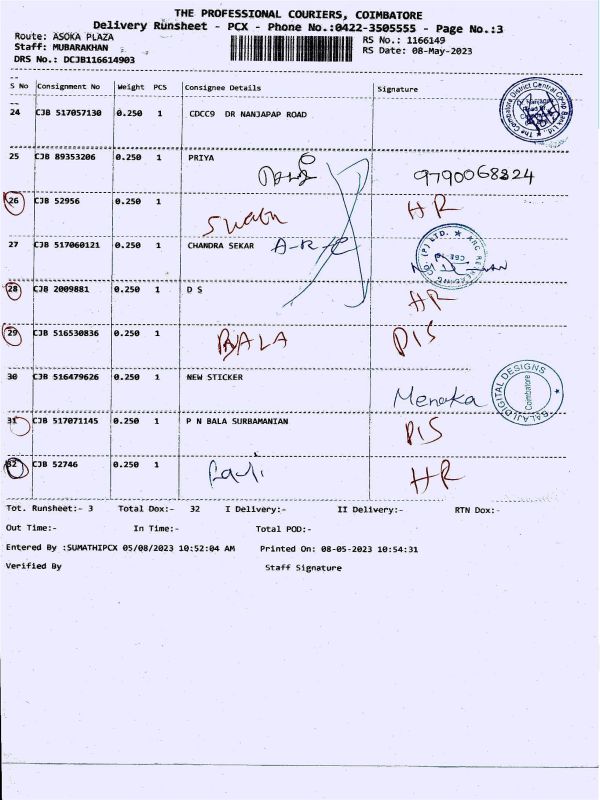 THE PROFESSIONAL COURIERS, COIMBATORE
Delivery Runsheet - PCX - Phone No.:0422-3505555 - Page No.:3
Route: ASOKA PLAZA
RS No.: 1166149
Staff: MUBARAKHAN
RS Date: 08-May-2023
DRS No.: DCJB116614903
S No Consignment No Weight PCS Consignee Details Signature
24 CJB 517057130 0.250 1 CDCC9 DR NANJAPAP ROAD
The Coimbatore District Central Co-op Bank Ltd
25 CJB 89353206 0.250 1 PRIYA
9790068324
26 CJB 52956 0.250 1 HR
27 CJB 517060121 0.250 1 CHANDRA SEKAR A-R-C
28 CJB 2009881 0.250 1 D S HR
29 CJB 516530836 0.250 1 BALA DIS
30 CJB 516479626 0.250 1 NEW STICKER Menaka
BALAJI DIGITAL DESIGNS
Coimbatore
31 CJB 517071145 0.250 1 P N BALA SURBAMANIAN DIS
32 CJB 52746 0.250 1 HR
Tot. Runsheet:- 3 Total Dox:- 32 I Delivery:- II Delivery:- RTN Dox:-
Out Time:- In Time:- Total POD:-
Entered By :SUMATHIPCX 05/08/2023 10:52:04 AM Printed On: 08-05-2023 10:54:31
Verified By Staff Signature